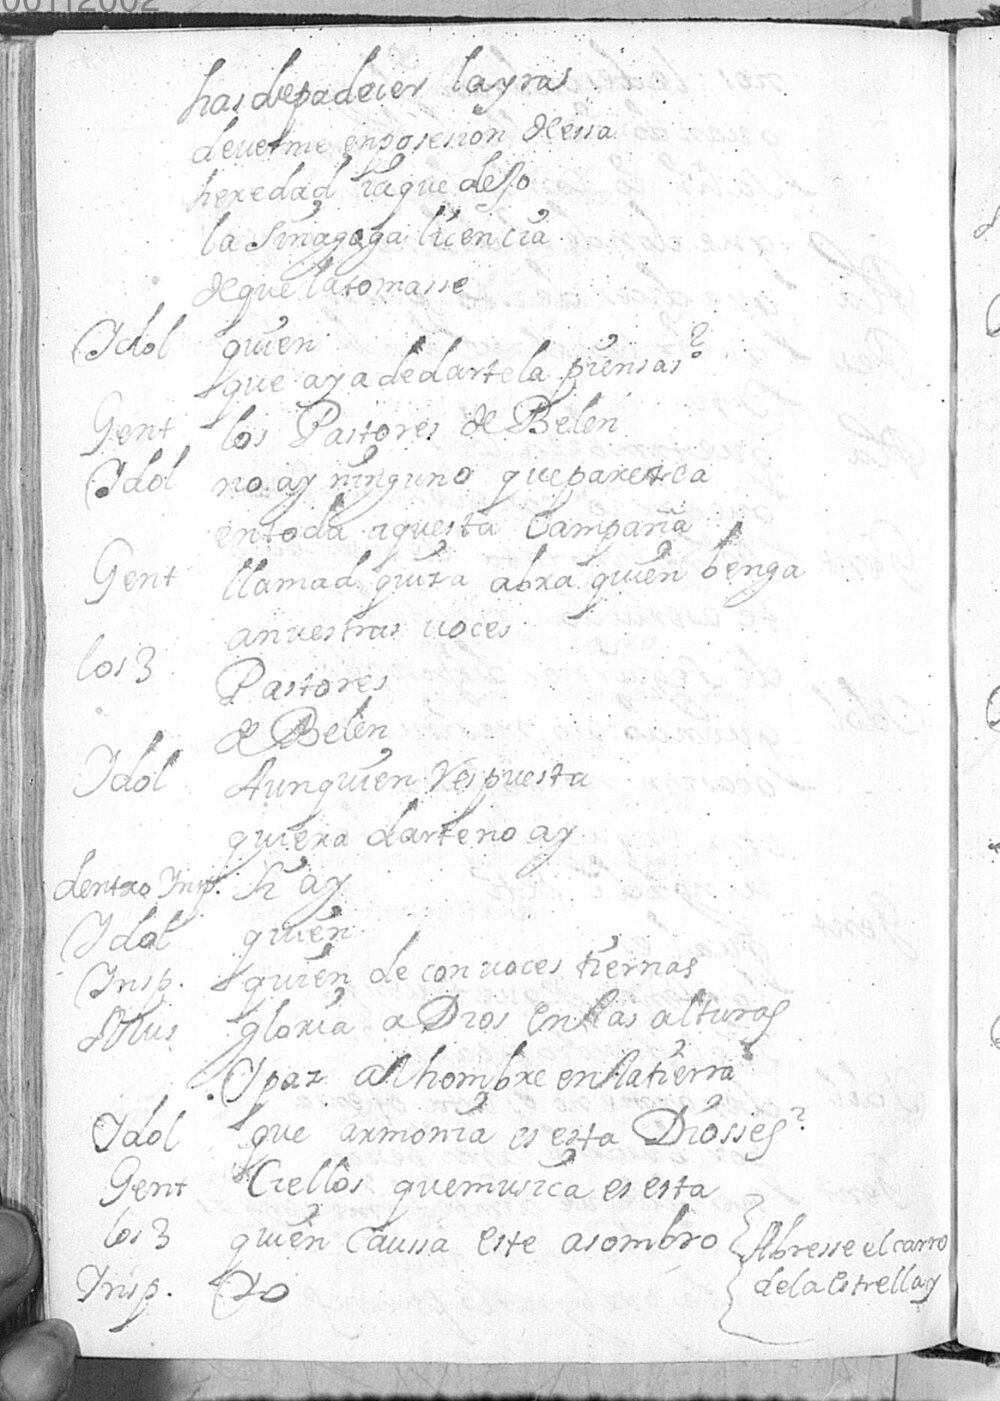 00112002
has de padecer la yras
de verme en posesion de essa
heredad ia que despo
la sinagoga licencia
de que la tomasse
Idol quien
que aya de dartela piensas?
Gent los Pastores de Belen
Idol no ay ninguno que paresca
en toda aquesta Campaña
Gent llamad quiza abra quien benga
a nuestras voces
los 3 Pastores
de Belen
Idol Aun quien Respuesta
quiera darte no ay
dentro Insp. Si ay
Idol quien
Insp. quien de con voces tiernas
Mus gloria a Dios en las alturas
Y paz al hombre en la tierra
Idol que armonia es esta Diosses?
Gent Ciellos que musica es esta
los 3 quien Caussa este asombro
Abresse el carro
de la Estrella y
Insp. Yo